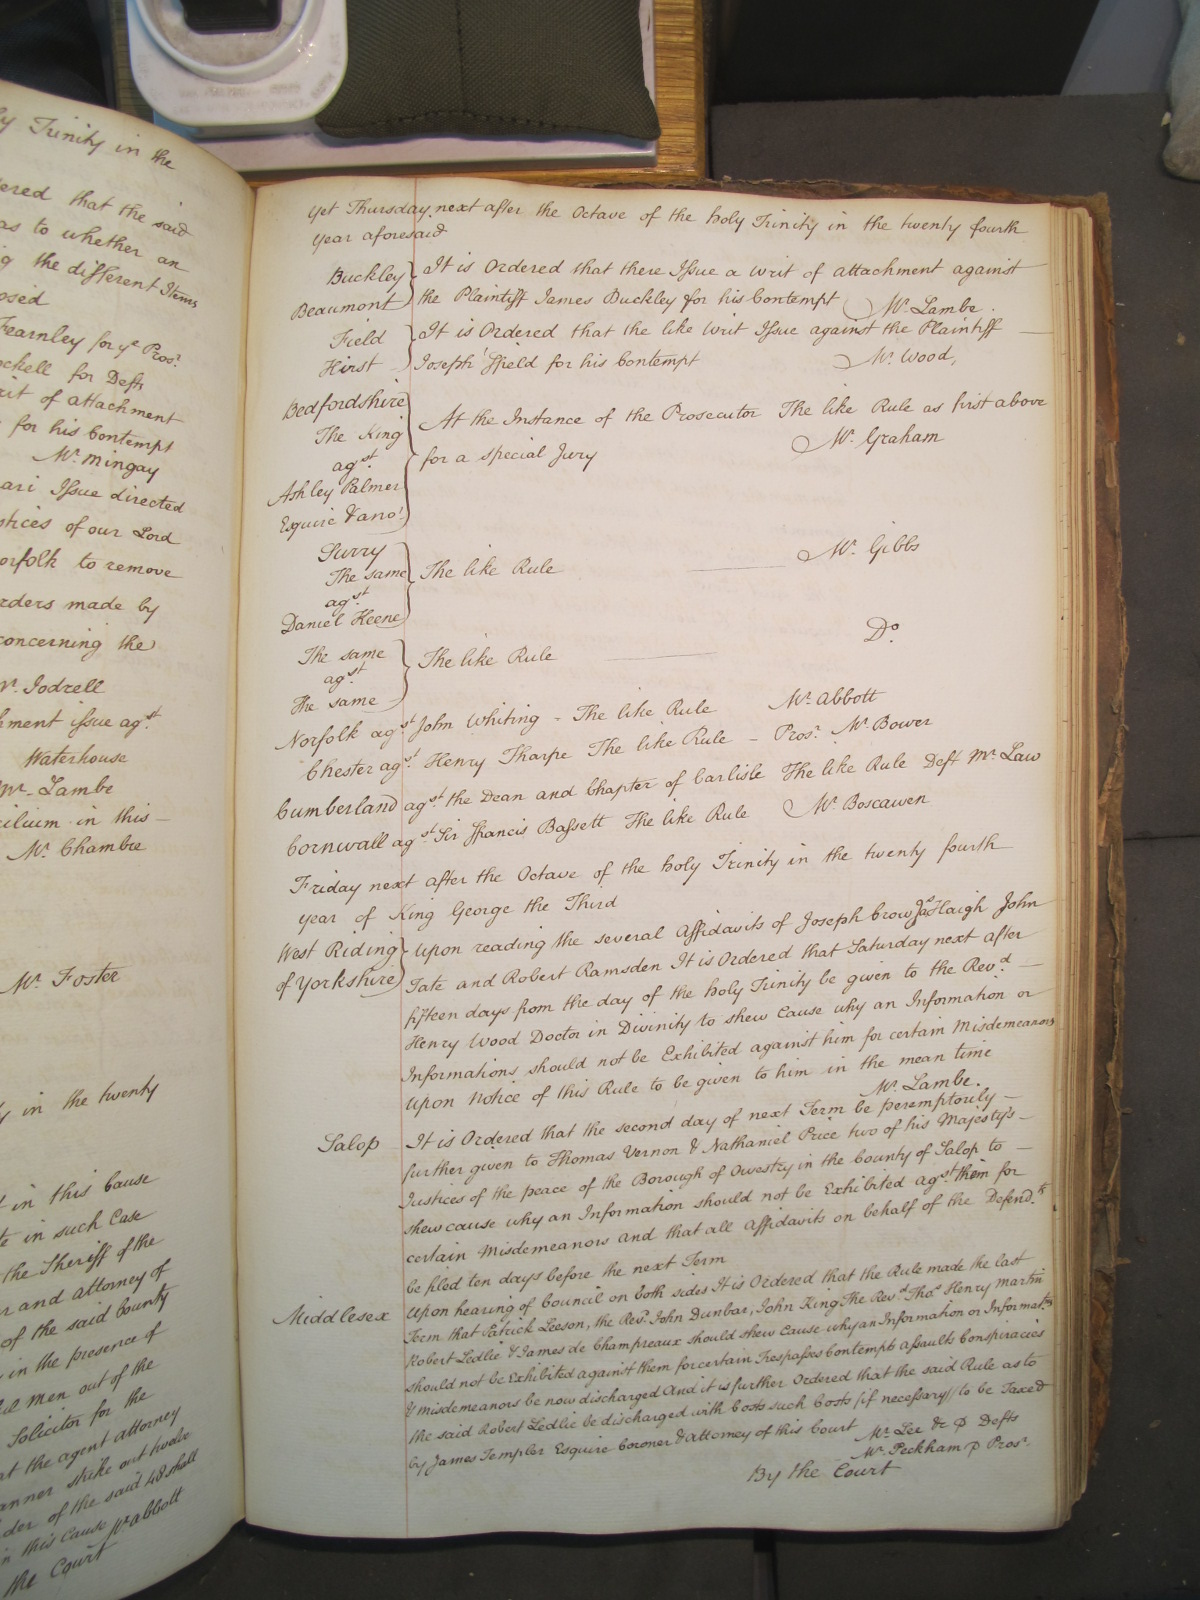 ly Trinity in the
ered that the said
as to whether an
g the different Items
osed
Fearnley for ye Prosr
ockell for Defts
rit of attachment
for his Contempt
Mr. Mingay
ari Issue directed
stices of our Lord
orfolk to remove
rders made by
concerning the
r. Jodrell
hment issue agst
Waterhouse
Mr. Lambe
cilium in this —
Mr. Chambre
Mr. Foster
y in the twenty
t in this Cause
te in such Case
the Sheriff of the
r and attorney of
of the said County
in the presence of
men out of the
Solicitor for the
at the agent attorney
anner strike out twelve
der of the said 48 shall
n this Cause Mr. Abbott
the Court
Yet Thursday next after the Octave of the holy Trinity in the twenty fourth
Year aforesaid
Buckley } It is Ordered that there Issue a writ of attachment against
Beaumont } the Plaintiff James Buckley for his Contempt Mr. Lambe.
Field } It is Ordered that the like writ Issue against the Plaintiff —
Hirst } Joseph ffield for his Contempt Mr. Wood,
Bedfordshire
The King } At the Instance of the Prosecutor The like Rule as first above
agst. for a special Jury Mr. Graham
Ashley Palmer
Esquire & anor.
Surry
The same } The like Rule — Mr. Gibbs
agst
Daniel Keene
The same } The like Rule — Do.
agst
The same
Norfolk agst John Whiting - The like Rule Mr. Abbott
Chester agst. Henry Tharpe The like Rule - Prosr. Mr Bower
Cumberland agst. the Dean and Chapter of Carlisle The like Rule Deft Mr. Law
Cornwall agst Sir ffrancis Bassett The like Rule Mr. Boscawen
Friday next after the Octave of the holy Trinity in the twenty fourth
year of King George the Third
West Riding } Upon reading the several Affidavits of Joseph Crow Jas Haigh John
of Yorkshire } Tate and Robert Ramsden It is Ordered that Saturday next after
fifteen days from the day of the holy Trinity be given to the Revd. —
Henry Wood Doctor in Divinity to shew Cause why an Information or
Informations should not be Exhibited against him for certain Misdemeanors
Upon Notice of this Rule to be given to him in the mean time
Mr. Lambe.
Salop It is Ordered that the second day of next Term be peremptorily —
further given to Thomas Vernon & Nathaniel Price two of his Majesty's —
Justices of the peace of the Borough of Oswestry in the County of Salop to —
shew cause why an Information should not be Exhibited agst them for
certain Misdemeanors and that all Affidavits on behalf of the Defendts
be filed ten days before the next Term
Middlesex Upon hearing of Council on both sides It is Ordered that the Rule made the last
Term that Patrick Leeson, the Revd. John Dunbar, John King The Revd Thos Henry Martin
Robert Ledlie & James de Champreaux should shew Cause why an Information or Informatns
should not be Exhibited against them for certain Trespasses Contempts assaults Conspiracies
& Misdemeanors be now discharged And it is further Ordered that the said Rule as to
the said Robert Ledlie be discharged with Costs such Costs (if necessary) to be Taxed
by James Templer Esquire Coroner & Attorney of this Court Mr. Lee &c p Defts
Mr. Peckham p Prosr.
By the Court